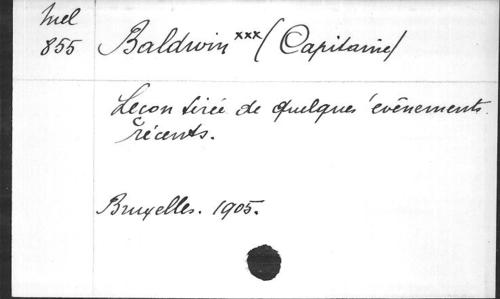 Mel
855
Baldwin xxx (Capitaine)
Leçon tirée de quelques évènements
récents.
Bruxelles. 1905.